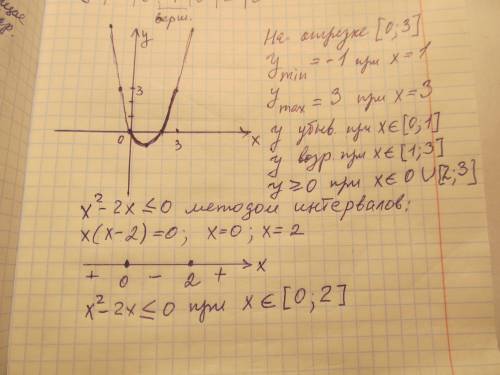 верш.
y
3
0
3
x
На отрезке [0;3]
y min = -1 при x = 1
y max = 3 при x = 3
y убыв. при x∈[0;1]
y возр. при x∈[1;3]
y ≥ 0 при x∈0∪[2;3]
x² - 2x ≤ 0 методом интервалов:
x(x-2)=0; x=0; x=2
+ 0 - 2 + x
x² - 2x ≤ 0 при x∈[0;2]